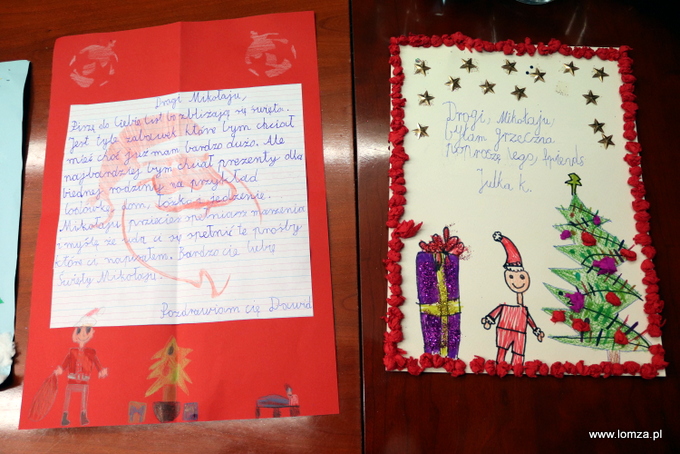 Drogi Mikołaju,
Piszę do Ciebie list bo zbliżają się święta.
Jest tyle zabawek które bym chciał
mieć choć już mam bardzo dużo. Ale
najbardziej bym chciał prezenty dla
biednej rodziny na przykład
lodówkę, dom, łóżka i jedzenie.
Mikołaju przecież spełniasz marzenia
i myślę że uda ci się spełnić te prośby
które ci napisałem. Bardzo cię lubię
Święty Mikołaju.
Pozdrawiam cię Dawid
Drogi, Mikołaju
byłam grzeczna
poproszę lego, friends
Julka k.
www.lomza.pl